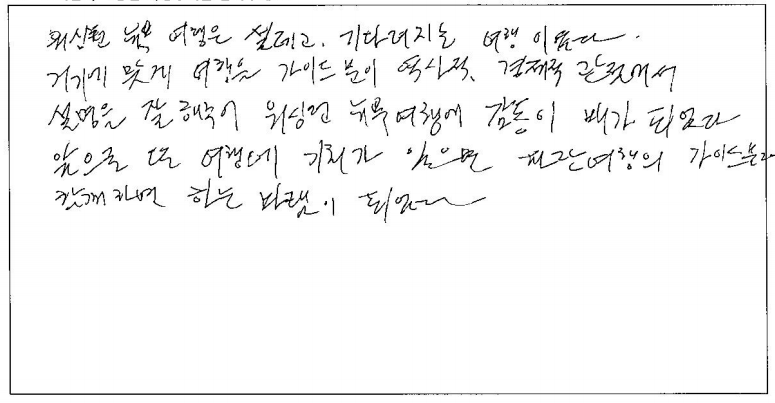 워싱턴 뉴욕 여행은 설레고, 기다려지는 여행 이였다.
거기에 맞게 여행을 가이드 분이 역사적, 경제적 관점에서
설명을 잘 해주어 워싱턴 뉴욕여행에 감동이 배가 되었다
앞으로 또 여행에 기회가 있으면 여행의 가이드분과
함께 하면 하는 바램이 되었다